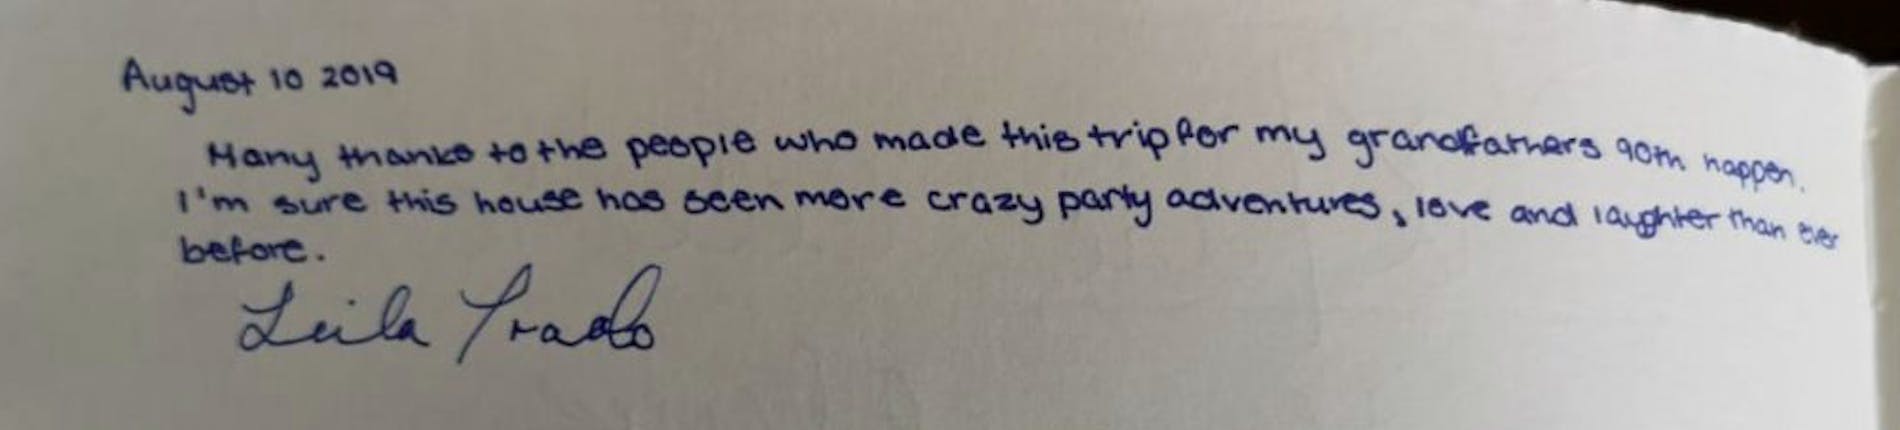 August 10 2019
Many thanks to the people who made this trip for my grandfathers 90th happen.
I'm sure this house has seen more crazy party adventures, love and laughter than ever
before.
Leila